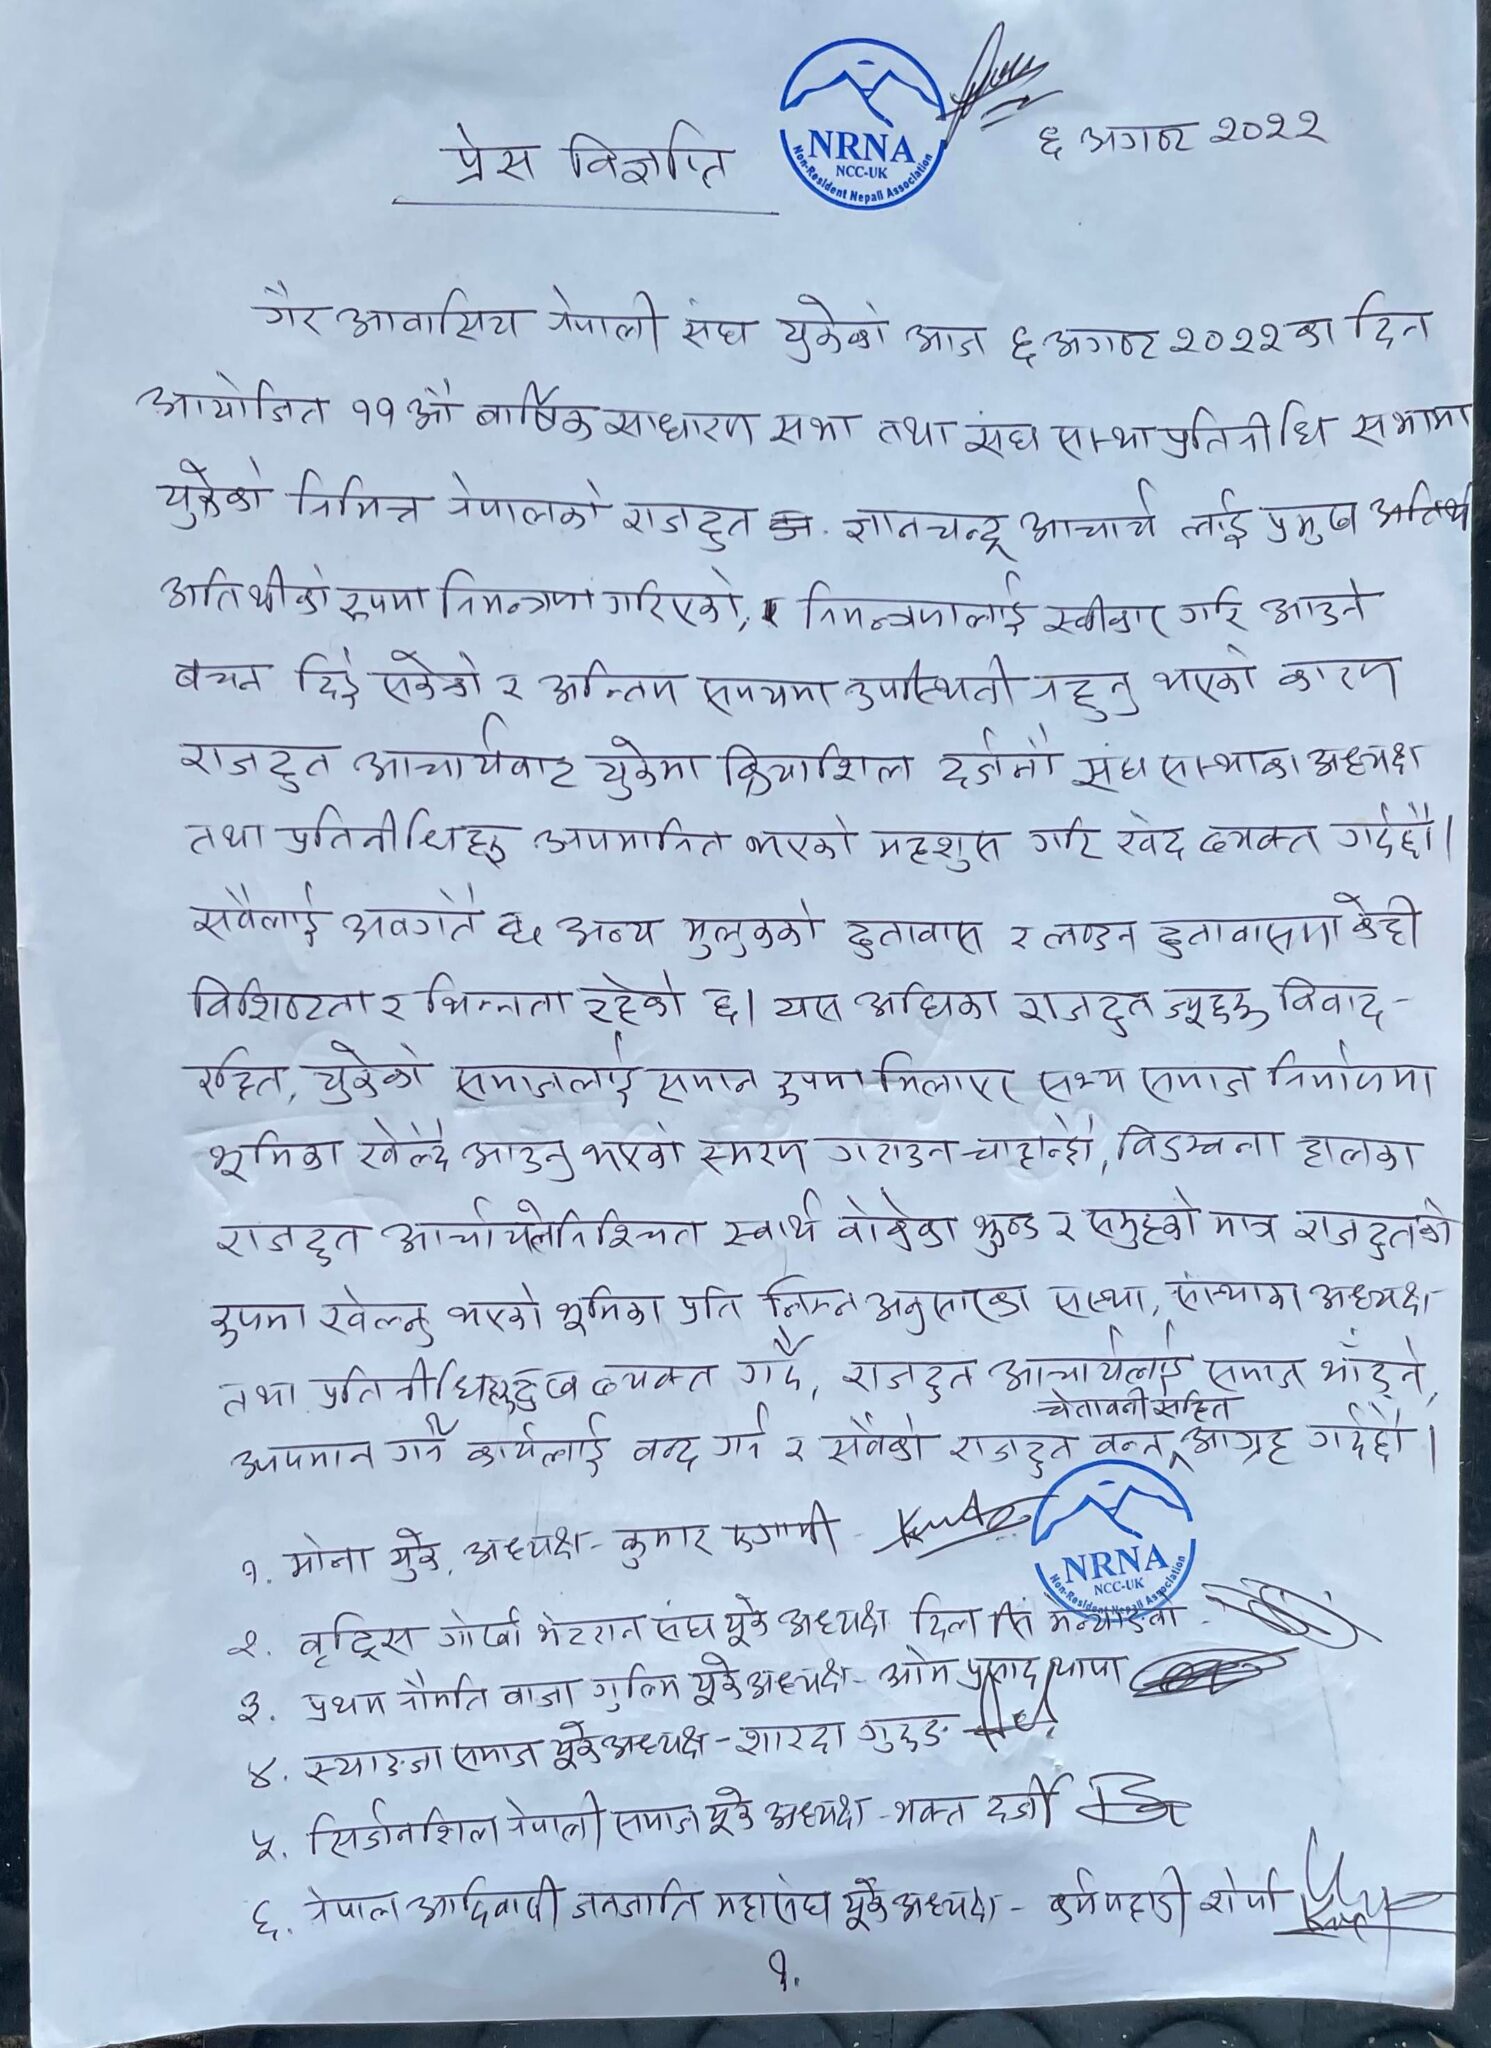 NRNA
NCC-UK
Non-Resident Nepali Association
६ अगष्ट २०२२
प्रेस विज्ञप्ति
गैर आवासिय नेपाली संघ युकेको आज ६ अगष्ट २०२२ का दिन
आयोजित ११औ बार्षिक साधारण सभा तथा संघ सस्था प्रतिनीधि सभामा
युकेको निमित्त नेपालको राजदुत ज्ञानचन्द्र आचार्य लाई प्रमुख अतिथि
अतिथीको रुपमा निमन्त्रणा गरिएको, निमन्त्रणालाई स्वीकार गरि आउने
बचन दिई सकेको र अन्तिम समयमा उपस्थिती नहुनु भएको कारण
राजदुत आचार्यवाट युकेमा क्रियाशिल दर्जनौ संघ सस्थाका अध्यक्ष
तथा प्रतिनीधिहरु अपमानित भएको महशुस गरि खेद व्यक्त गर्दछौ।
सवैलाई अवगतै छ अन्य मुलुकको दुतावास र लण्डन दुतावासमा केही
विशिष्टता र भिन्नता रहेको छ। यस अघिका राजदुत ज्यूहरु विवाद-
रहित, युकेको समाजलाई समान रुपमा मिलाएर सभ्य समाज निर्माणमा
भूमिका खेल्दै आउनु भएको स्मरण गराउन चाहान्छौ, विडम्वना हालका
राजदुत आर्चायले निश्चित स्वार्थ वोकेका झुण्ड र समुहको मात्र राजदुतको
रुपमा खेल्नु भएको भूमिका प्रति निम्न अनुसारका सस्था, सस्थाका अध्यक्ष
तथा प्रतिनीधिहरु दुख व्यक्त गर्दै, राजदुत आचार्यलाई समाज भाँड्ने,
चेतावनी सहित
अपमान गर्ने कार्यलाई वन्द गर्न र सवैको राजदुत वन्न आग्रह गर्दछौ।
NRNA
NCC-UK
Non-Resident Nepali Association
१. मोना युके, अध्यक्ष- कुमार एगामी
२. वृटिस गोर्खा भेटरान संघ यूके अध्यक्ष दिल
३. प्रथम नौमति वाजा गुल्मि यूके अध्यक्ष- ओम प्रसाद थापा
४. स्याङजा समाज यूके अध्यक्ष- शारदा गुरुङ
५. सिर्जनशिल नेपाली समाज यूके अध्यक्ष- भक्त दर्जी
६. नेपाल आदिवासी जनजाति महासंघ यूके अध्यक्ष- शेर्पा
१.